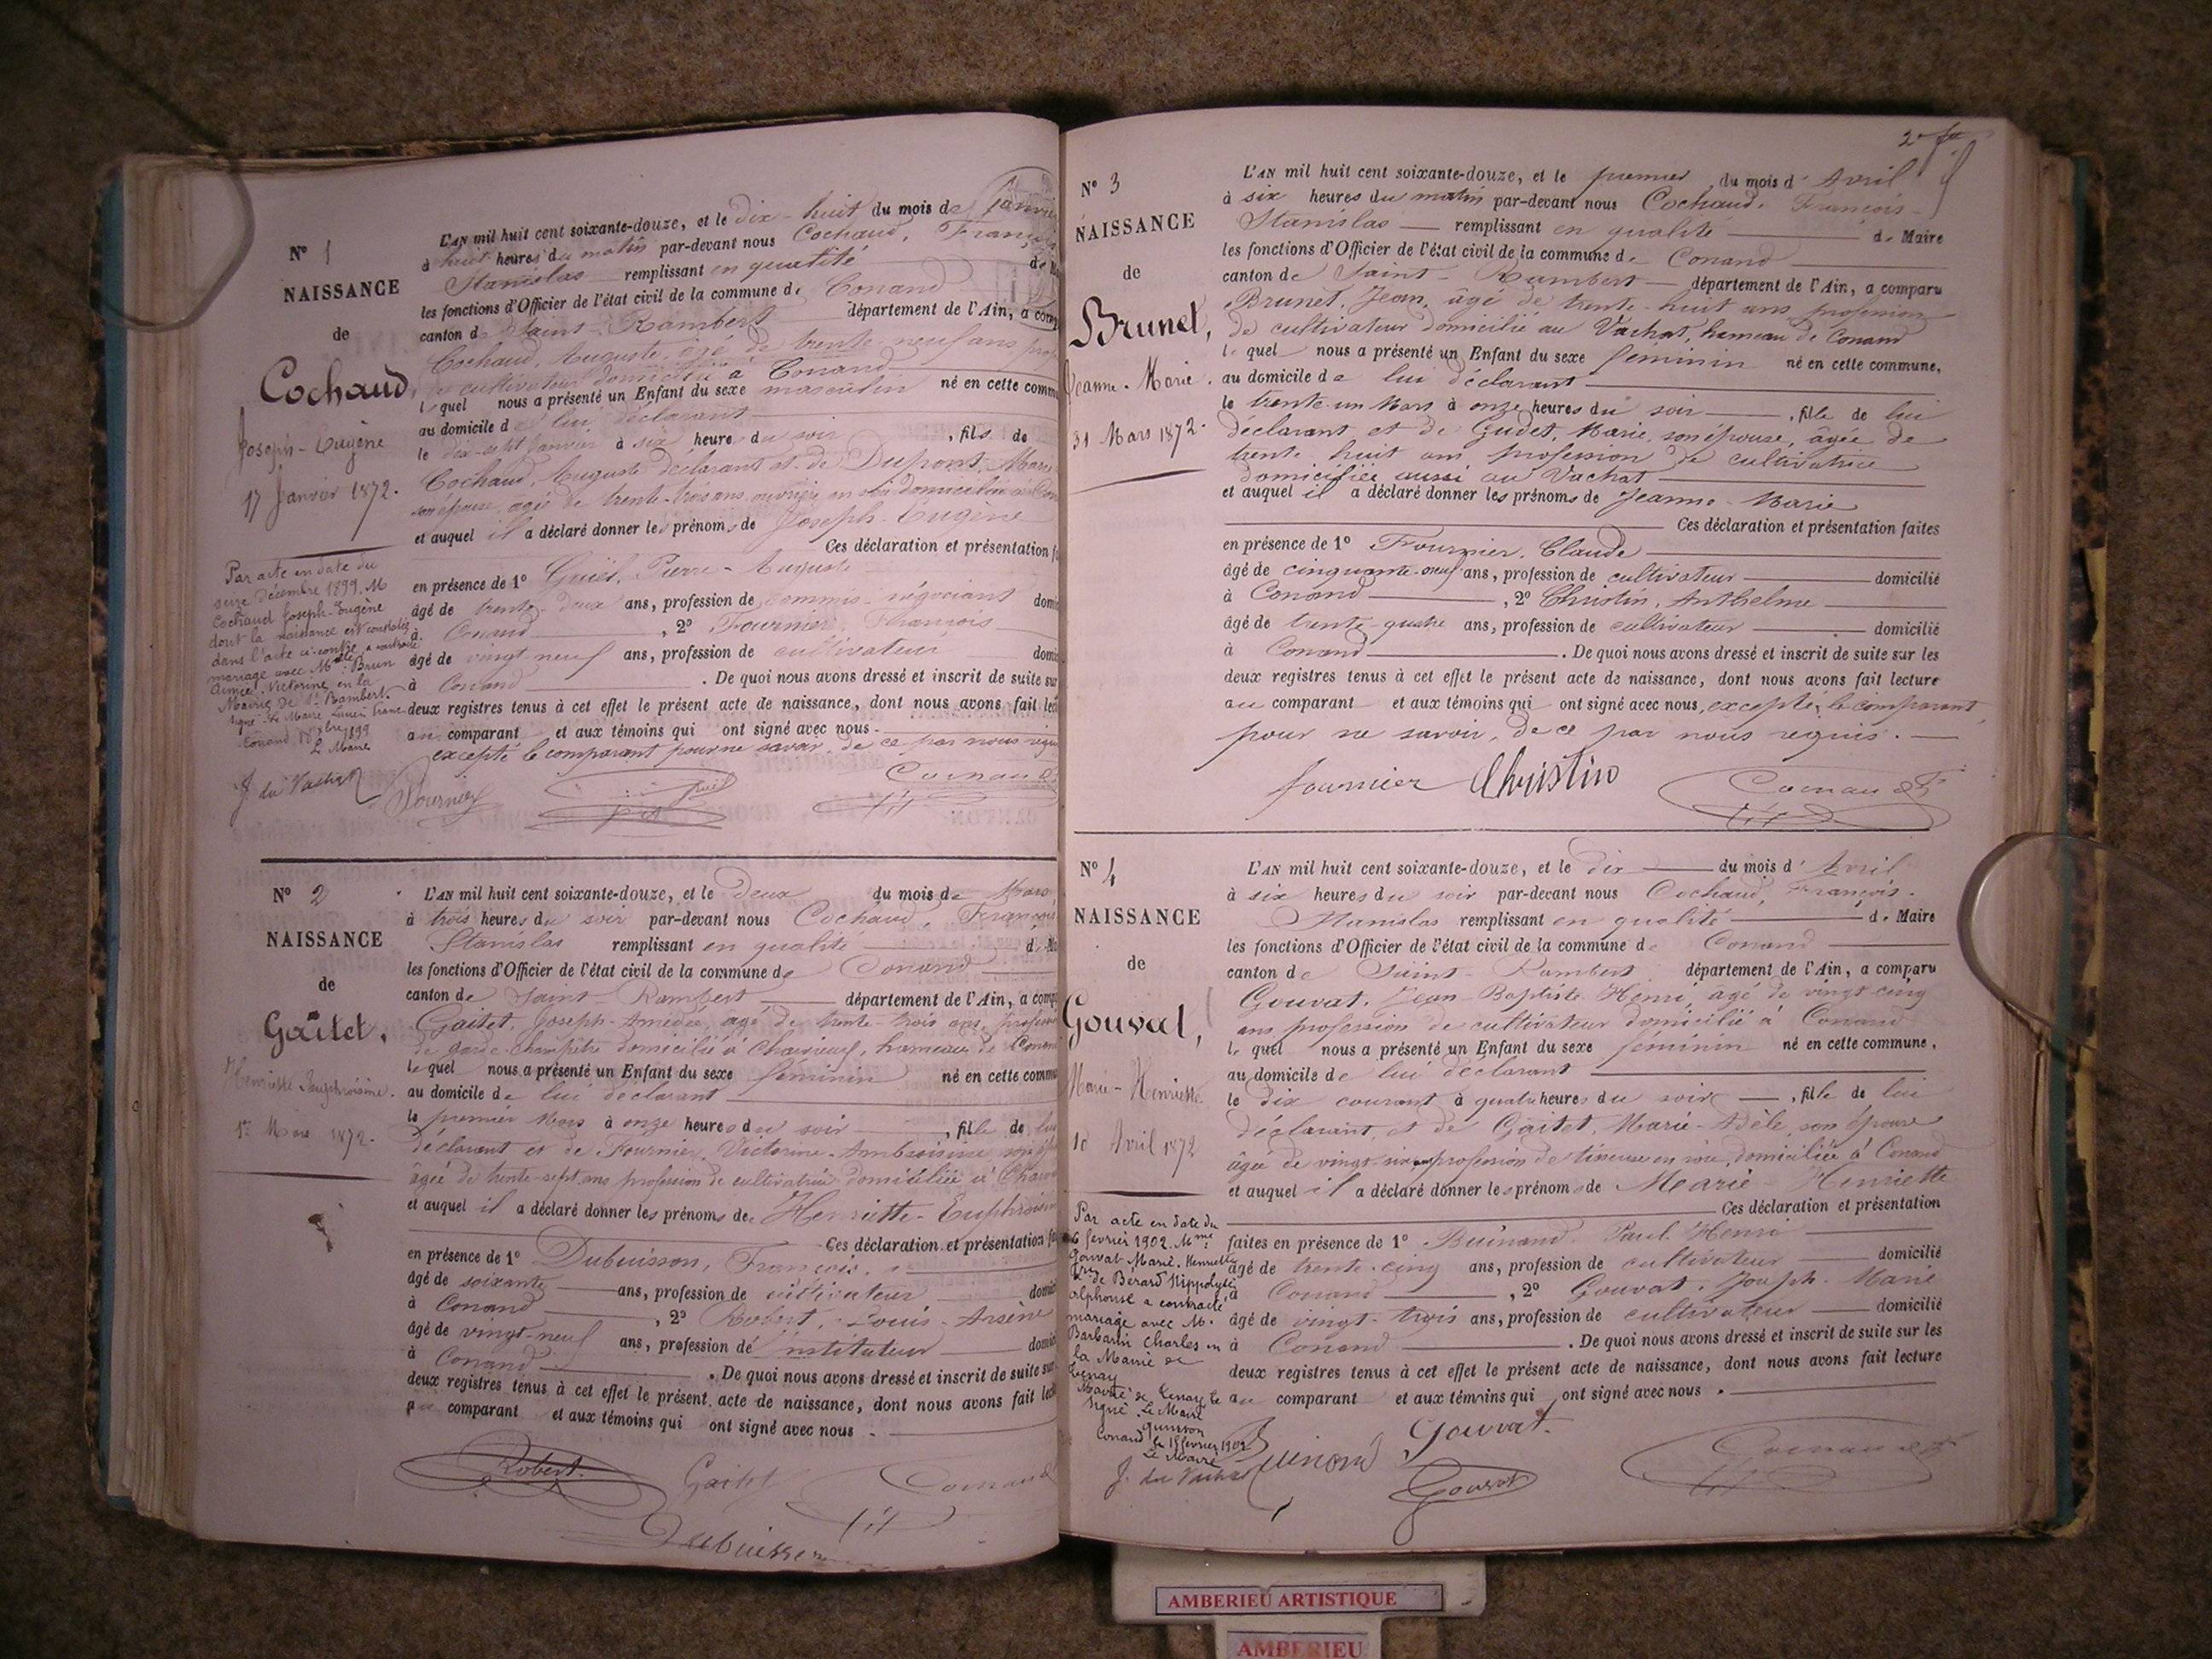 N° 1
NAISSANCE
de
Cochaud,
Joseph-Eugène
17 Janvier 1872.
Par acte en date du
seize décembre 1899, M
Cochaud Joseph-Eugène
dont la naissance est constatée
dans l'acte ci-contre a contracté
mariage avec Melle Brun
Aimée Victorine en la
Mairie de St Rambert.
signé Le Maire Lucien Franc
Conand, 1899
L Maire
J. du Vachat
L'AN mil huit cent soixante-douze, et le dix-huit du mois de Janvier
à huit heures du matin par-devant nous Cochaud, François
Stanislas remplissant en qualité de
les fonctions d'Officier de l'état civil de la commune de Conand
canton de Saint-Rambert département de l'Ain, a comp
Cochaud, Auguste, âgé de trente-neuf ans prof
de cultivateur domicilié à Conand
lequel nous a présenté un Enfant du sexe masculin né en cette comm
au domicile de lui déclarant
le dix-sept Janvier à six heures du soir, fils de
Cochaud, Auguste déclarant et de Dupont, Marie
son épouse, âgée de trente-trois ans, ouvrière en soie domiciliée à Con
et auquel il a déclaré donner les prénoms de Joseph-Eugène
Ces déclaration et présentation f
en présence de 1° Guiel, Pierre-Auguste
âgé de trente-deux ans, profession de commis-négociant domi
à Conand, 2° Fournier, François
âgé de vingt-neuf ans, profession de cultivateur domi
à Conand. De quoi nous avons dressé et inscrit de suite sur
deux registres tenus à cet effet le présent acte de naissance, dont nous avons fait lec
au comparant et aux témoins qui ont signé avec nous.
excepté le comparant pour ne savoir, de ce par nous requis
Fournier
N° 2
NAISSANCE
de
Gaitet,
Henriette-Euphroisine.
1er Mars 1872.
L'AN mil huit cent soixante-douze, et le deux du mois de Mars
à trois heures du soir par-devant nous Cochaud, François
Stanislas remplissant en qualité de
les fonctions d'Officier de l'état civil de la commune de Conand
canton de Saint-Rambert département de l'Ain, a comp
Gaitet, Joseph-Amédée, âgé de trente-trois ans, profession
de garde-champêtre domicilié à Charvieux, hameau de Conand
lequel nous a présenté un Enfant du sexe féminin né en cette commu
au domicile de lui déclarant
le premier Mars à onze heures du soir, fille de lui
déclarant et de Fournier, Victorine-Ambroisine son ép
âgée de trente-sept ans profession de cultivatrice domiciliée à Charv
et auquel il a déclaré donner les prénoms de Henriette-Euphroisin
Ces déclaration et présentation fa
en présence de 1° Dubuisson, François,
âgé de soixante ans, profession de cultivateur domici
à Conand, 2° Robert, Louis-Arsène
âgé de vingt-neuf ans, profession dé instituteur domici
à Conand. De quoi nous avons dressé et inscrit de suite sur
deux registres tenus à cet effet le présent acte de naissance, dont nous avons fait lect
au comparant et aux témoins qui ont signé avec nous.
Robert. Gaitet
Dubuisson
N° 3
NAISSANCE
de
Brunet,
Jeanne-Marie.
31 Mars 1872.
L'AN mil huit cent soixante-douze, et le premier du mois d'Avril
à six heures du matin par-devant nous Cochaud, François-
Stanislas remplissant en qualité de Maire
les fonctions d'Officier de l'état civil de la commune de Conand
canton de Saint-Rambert département de l'Ain, a comparu
Brunet, Jean, âgé de trente-huit ans profession
de cultivateur domicilié au Vachat, hameau de Conand
lequel nous a présenté un Enfant du sexe féminin né en cette commune,
au domicile de lui déclarant
le trente-un Mars à onze heures du soir, fille de lui
déclarant et de Gudet, Marie, son épouse, âgée de
trente huit ans profession de cultivatrice
domiciliée aussi au Vachat
et auquel il a déclaré donner les prénoms de Jeanne-Marie
Ces déclaration et présentation faites
en présence de 1° Fournier, Claude
âgé de cinquante-neuf ans, profession de cultivateur domicilié
à Conand, 2° Christin, Anthelme
âgé de trente-quatre ans, profession de cultivateur domicilié
à Conand. De quoi nous avons dressé et inscrit de suite sur les
deux registres tenus à cet effet le présent acte de naissance, dont nous avons fait lecture
au comparant et aux témoins qui ont signé avec nous, excepté le comparant,
pour ne savoir, de ce par nous requis.
fournier Christin
N° 4
NAISSANCE
de
Gouvat,
Marie-Henriette
10 Avril 1872
Par acte en date du
6 février 1902. Mme
Gouvat Marie-Henriette
Vve de Bérard Hippolyte
alphonse a contracté
mariage avec M.
Barbarin Charles en
la Mairie de
Tenay
Mairie de Tenay le
signé Le Maire
quinson
Conand le 15 février 1902
Le Maire
J. du Vachat
L'AN mil huit cent soixante-douze, et le dix du mois d'Avril
à six heures du soir par-devant nous Cochaud, François-
Stanislas remplissant en qualité de Maire
les fonctions d'Officier de l'état civil de la commune de Conand
canton de Saint-Rambert département de l'Ain, a comparu
Gouvat, Jean-Baptiste-Henri, âgé de vingt-cinq
ans profession de cultivateur domicilié à Conand
lequel nous a présenté un Enfant du sexe féminin né en cette commune,
au domicile de lui déclarant
le dix courant à quatre heures du soir, fille de lui
déclarant, et de Gaitet, Marie-Adèle, son épouse
âgée de vingt-six ans profession de tisseuse en soie, domiciliée à Conand
et auquel il a déclaré donner les prénoms de Marie-Henriette
Ces déclaration et présentation
faites en présence de 1° Buinand Paul Henri
âgé de trente-cinq ans, profession de cultivateur domicilié
à Conand, 2° Gouvat, Joseph-Marie
âgé de vingt-trois ans, profession de cultivateur domicilié
à Conand. De quoi nous avons dressé et inscrit de suite sur les
deux registres tenus à cet effet le présent acte de naissance, dont nous avons fait lecture
au comparant et aux témoins qui ont signé avec nous.
Buinand Gouvat.
Gouvat
AMBERIEU ARTISTIQUE
AMBERIEU